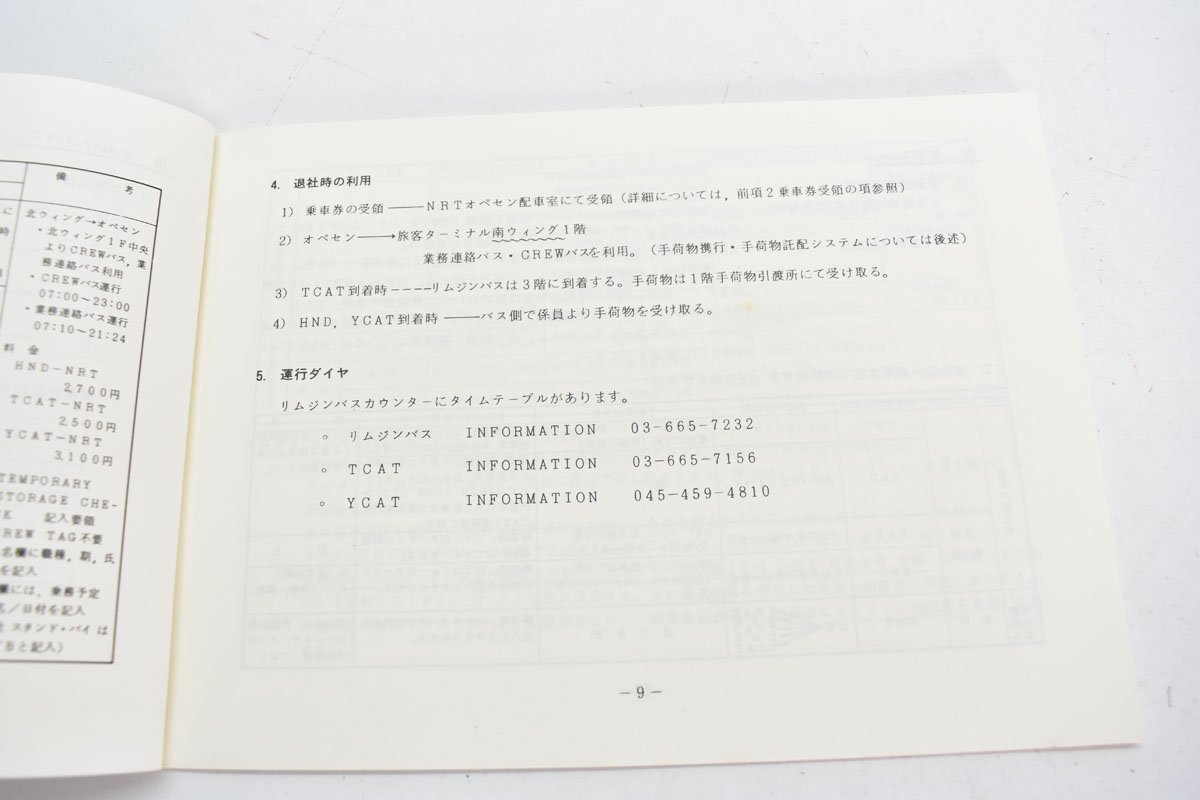 備考
北ウィング→オペセン
・北ウィング1F中央
よりCREWバス,業
務連絡バス利用
・CREWバス運行
07:00〜23:00
・業務連絡バス運行
07:10〜21:24
料金
HND-NRT
2,700円
TCAT-NRT
2,500円
YCAT-NRT
3,100円
TEMPORARY
STORAGE CHE-
記入要領
TAG不要
名欄に職種,期,氏
を記入
欄には,乗務予定
名/日付を記入
スタンド・バイは
Bと記入)
4. 退社時の利用
1) 乗車券の受領――NRTオペセン配車室にて受領(詳細については,前項2乗車券受領の項参照)
2) オペセン――→旅客ターミナル南ウィング1階
業務連絡バス・CREWバスを利用。(手荷物携行・手荷物託配システムについては後述)
3) TCAT到着時----リムジンバスは3階に到着する。手荷物は1階手荷物引渡所にて受け取る。
4) HND, YCAT到着時――バス側で係員より手荷物を受け取る。
5. 運行ダイヤ
リムジンバスカウンターにタイムテーブルがあります。
○ リムジンバス INFORMATION 03-665-7232
○ TCAT INFORMATION 03-665-7156
○ YCAT INFORMATION 045-459-4810
-9-